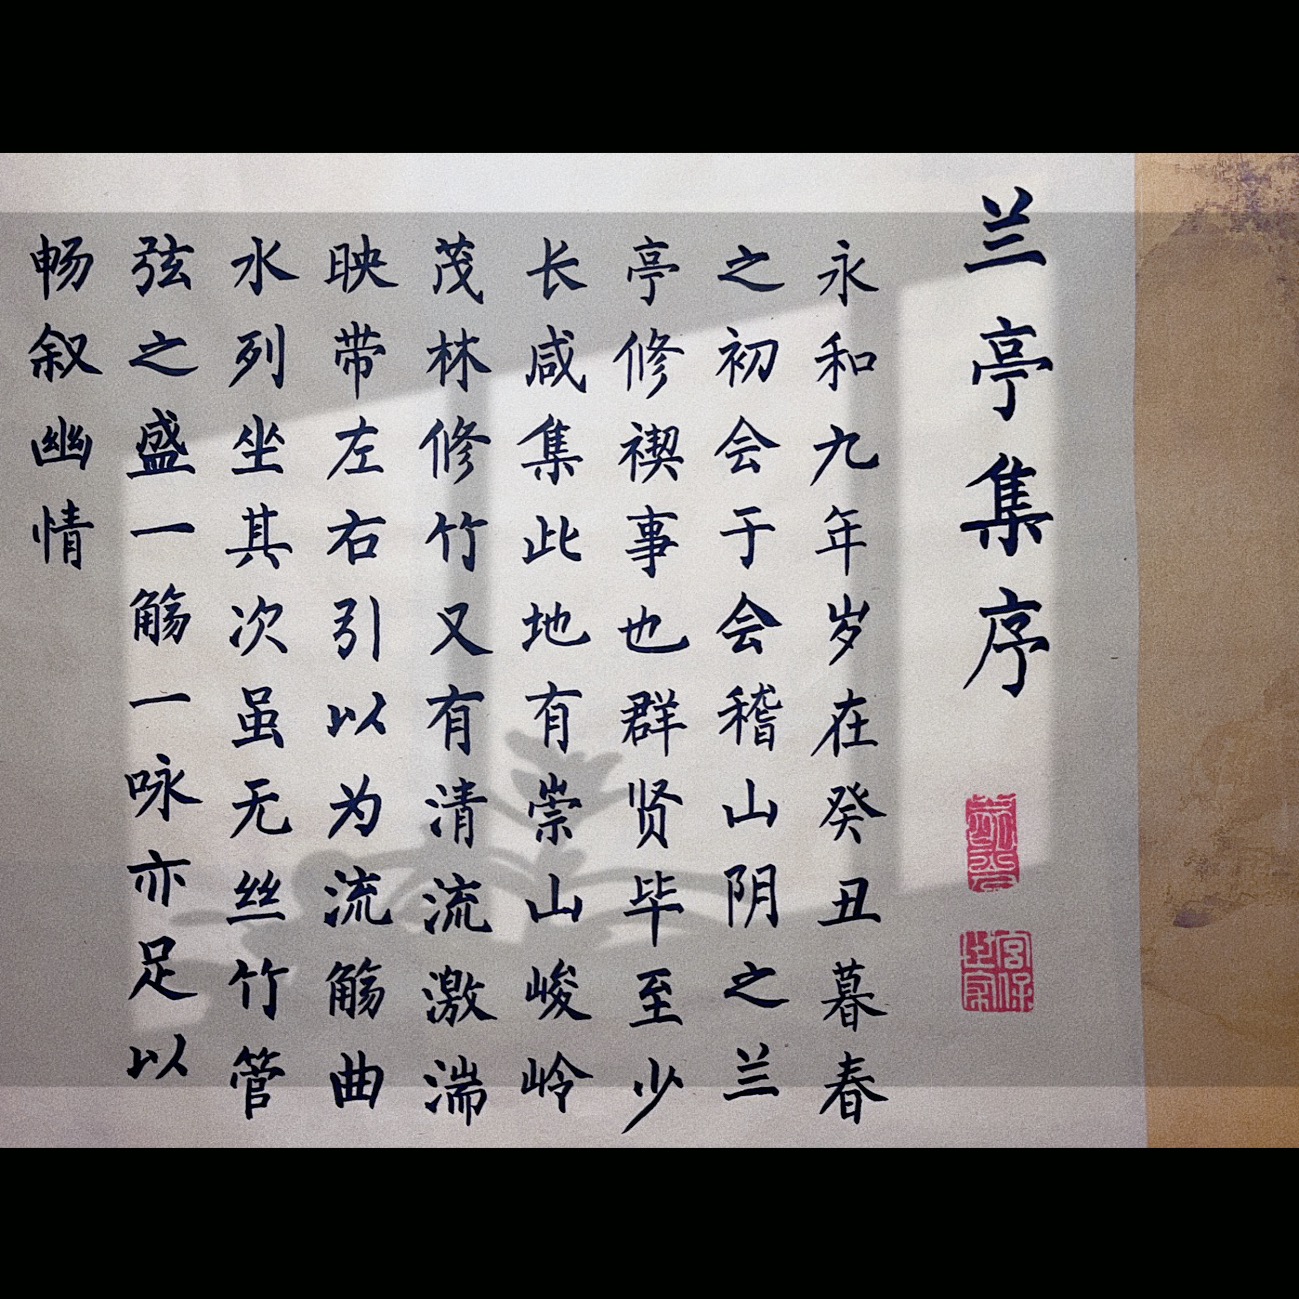 兰亭集序
永和九年岁在癸丑暮春
之初会于会稽山阴之兰
亭修禊事也群贤毕至少
长咸集此地有崇山峻岭
茂林修竹又有清流激湍
映带左右引以为流觞曲
水列坐其次虽无丝竹管
弦之盛一觞一咏亦足以
畅叙幽情